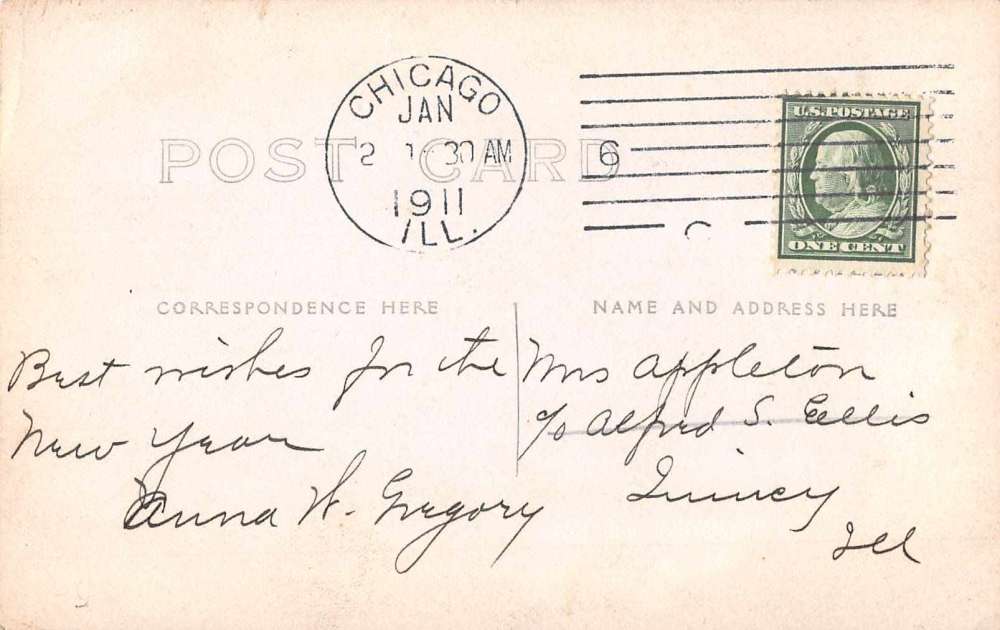 CHICAGO
JAN
2 1-30 AM
1911
ILL.
6
U.S. POSTAGE
ONE CENT
POST CARD
CORRESPONDENCE HERE
NAME AND ADDRESS HERE
Best wishes for the
New Year
Anna W. Gregory
Mrs Appleton
c/o Alfred S. Ellis
Quincy
Ill